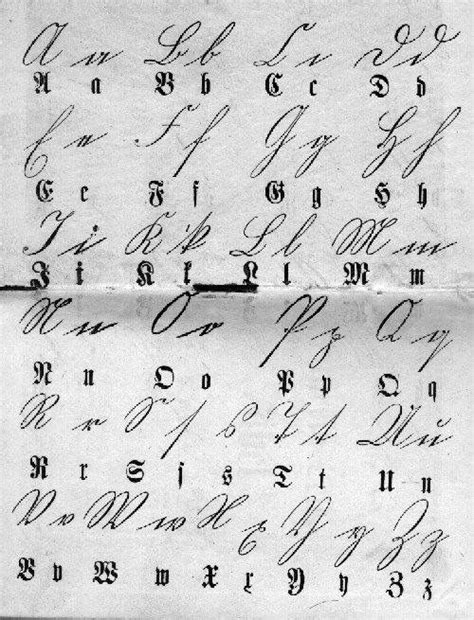 A a B b C c D d
A a B b C c D d
E e F f G g H h
E e F f G g H h
I i K k L l M m
I i K k L l M m
N n O o P p Q q
N n O o P p Q q
R r S ſ s T t U u
R r S ſ s T t U u
V v W w X x Y y Z z
V v W w X x Y y Z z